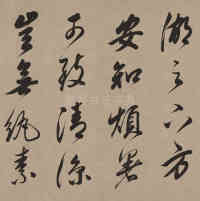 湖之下方
安知煩暑
可致清涼
豈無紈素